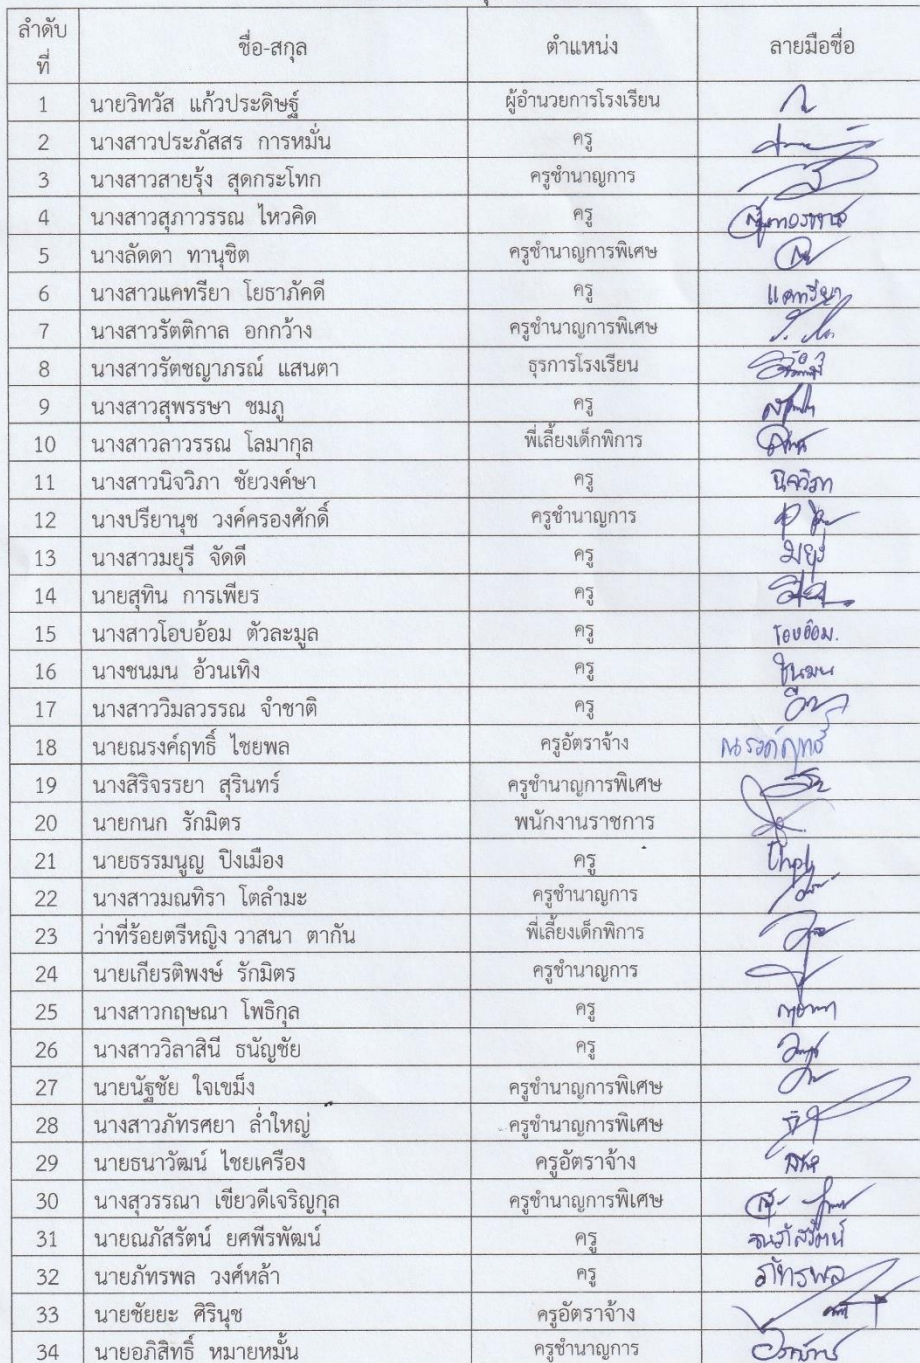 ลำดับ
ที่ ชื่อ-สกุล ตำแหน่ง ลายมือชื่อ
1 นายวิทวัส แก้วประดิษฐ์ ผู้อำนวยการโรงเรียน
2 นางสาวประภัสสร การหมั่น ครู
3 นางสาวสายรุ้ง สุดกระโทก ครูชำนาญการ
4 นางสาวสุภาวรรณ ไหวคิด ครู
5 นางลัดดา ทานุชิต ครูชำนาญการพิเศษ
6 นางสาวแคทรียา โยธาภัคดี ครู แคทรียา
7 นางสาวรัตติกาล อกกว้าง ครูชำนาญการพิเศษ
8 นางสาวรัตชญาภรณ์ แสนตา ธุรการโรงเรียน
9 นางสาวสุพรรษา ชมภู ครู
10 นางสาวลาวรรณ โลมากุล พี่เลี้ยงเด็กพิการ
11 นางสาวนิจวิภา ชัยวงค์ษา ครู นิจวิภา
12 นางปรียานุช วงค์ครองศักดิ์ ครูชำนาญการ
13 นางสาวมยุรี จัดดี ครู มยุรี
14 นายสุทิน การเพียร ครู
15 นางสาวโอบอ้อม ตัวละมูล ครู โอบอ้อม.
16 นางชนมน อ้วนเทิง ครู ชนมน
17 นางสาววิมลวรรณ จำชาติ ครู
18 นายณรงค์ฤทธิ์ ไชยพล ครูอัตราจ้าง ณรงค์ฤทธิ์
19 นางสิริจรรยา สุรินทร์ ครูชำนาญการพิเศษ
20 นายกนก รักมิตร พนักงานราชการ
21 นายธรรมนูญ ปิงเมือง ครู
22 นางสาวมณทิรา โตลำมะ ครูชำนาญการ
23 ว่าที่ร้อยตรีหญิง วาสนา ตากัน พี่เลี้ยงเด็กพิการ
24 นายเกียรติพงษ์ รักมิตร ครูชำนาญการ
25 นางสาวกฤษณา โพธิกุล ครู
26 นางสาววิลาสินี ธนัญชัย ครู
27 นายนัฐชัย ใจเขม็ง ครูชำนาญการพิเศษ
28 นางสาวภัทรศยา ล่ำใหญ่ ครูชำนาญการพิเศษ
29 นายธนาวัฒน์ ไชยเครือง ครูอัตราจ้าง
30 นางสุวรรณา เขียวดีเจริญกุล ครูชำนาญการพิเศษ
31 นายณภัสรัตน์ ยศพีรพัฒน์ ครู
32 นายภัทรพล วงศ์หล้า ครู ภัทรพล
33 นายชัยยะ ศิรินุช ครูอัตราจ้าง
34 นายอภิสิทธิ์ หมายหมั้น ครูชำนาญการ